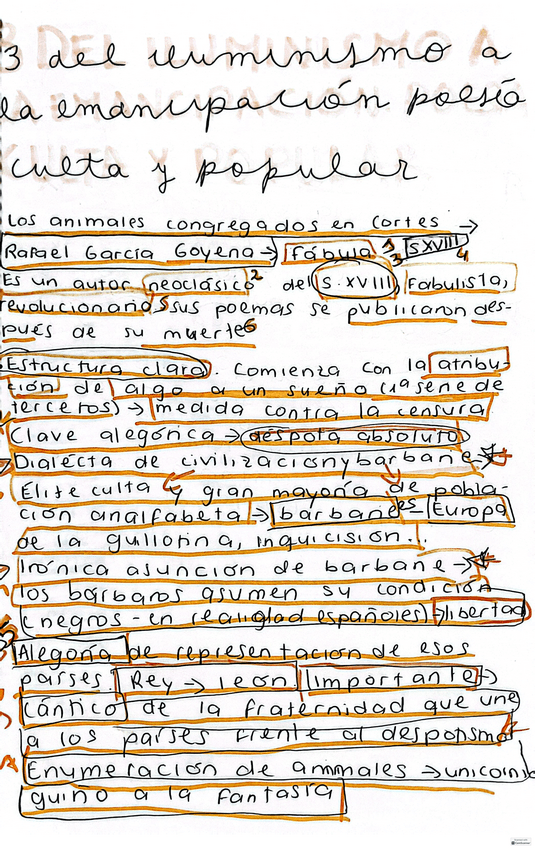 3 del iluminismo a
la emancipación poesía
culta y popular
Los animales congregados en cortes →
Rafael García Goyena → Fábula 1 3 S XVIII 4
Es un autor neoclásico 2 del S. XVIII, Fabulista,
revolucionario, 5 sus poemas se publicaron des-
pués de su muerte 6
Estructura clara. Comienza con la atribu-
ción de algo a un sueño (1ª serie de
tercetos) → medida contra la censura
Clave alegórica → déspota absoluto
Dialécta de civilización y barbarie →
Élite culta y gran mayoría de pobla-
ción analfabeta → barbarie es Europa
de la guillotina, inquisición...
Irónica asunción de barbarie →
los bárbaros asumen su condición
(negros - en realidad españoles) → libertad
Alegoría de representación de esos
países: Rey → león Importante →
Cántico de la fraternidad que une
a los países frente al despopsmo
Enumeración de animales → unicornio
guiño a la fantasía